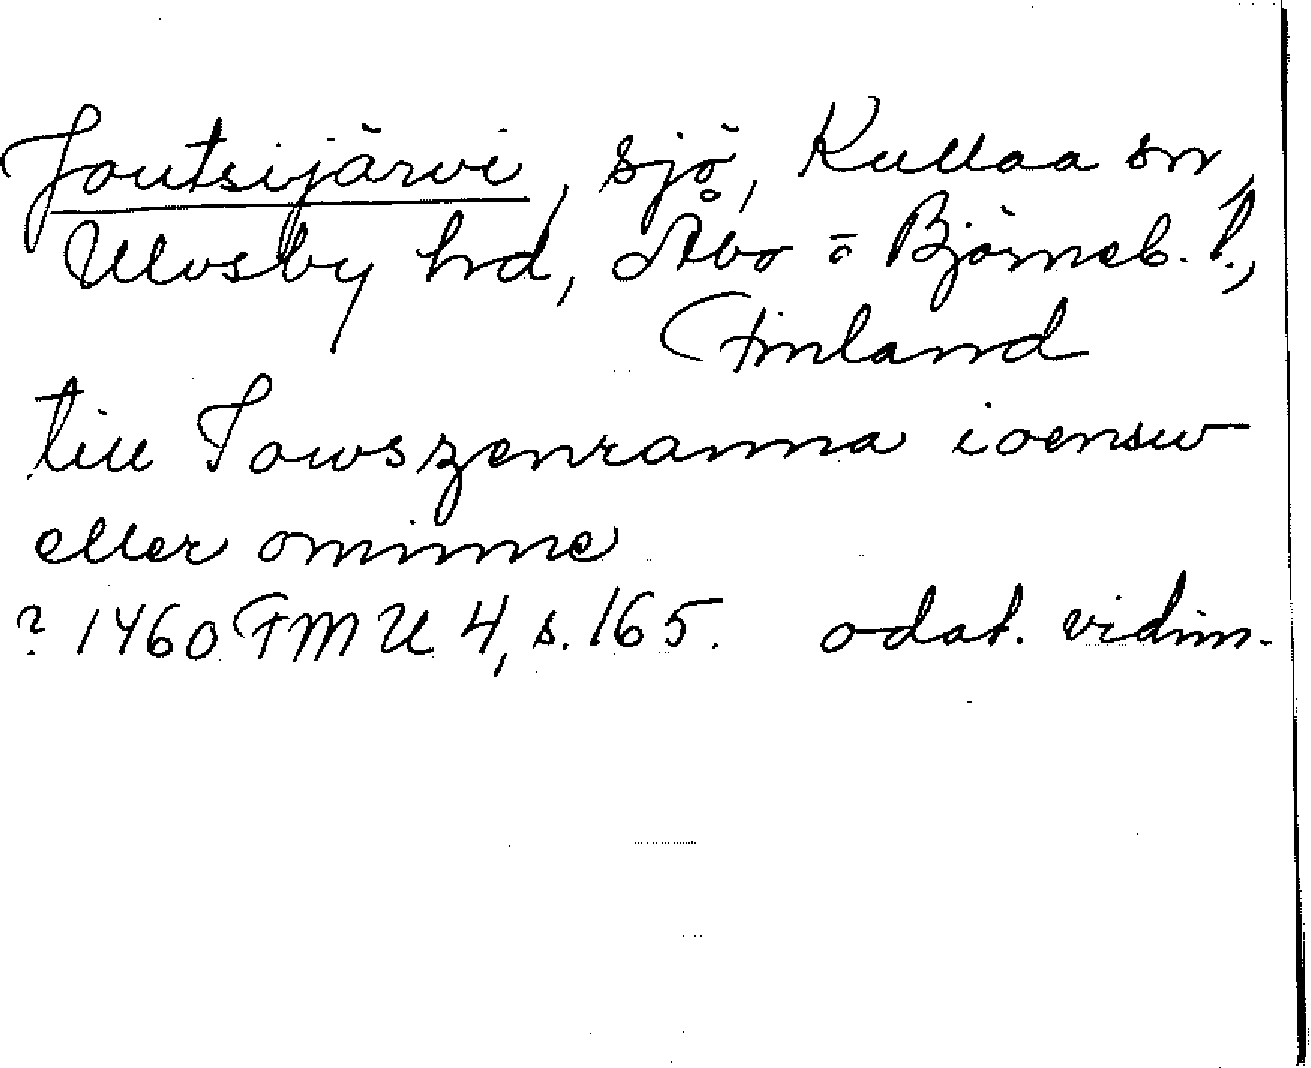 Joutsijärvi, sjö, Kullaa sn,
Ulvsby hd, Åbo o Björneb. l.,
Finland
till Jowszenranna ioensw
eller ominne
? 1460 FMU 4, s. 165. odat. vidim.